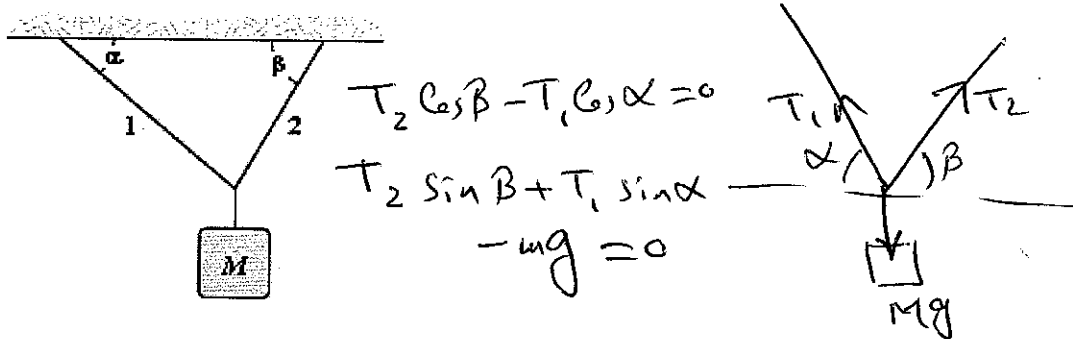 α
β
1
2
M
T₂ Cosβ - T₁ Cosα = 0
T₂ sin β + T₁ sinα
- mg = 0
T₁
T₂
α
β
Mg